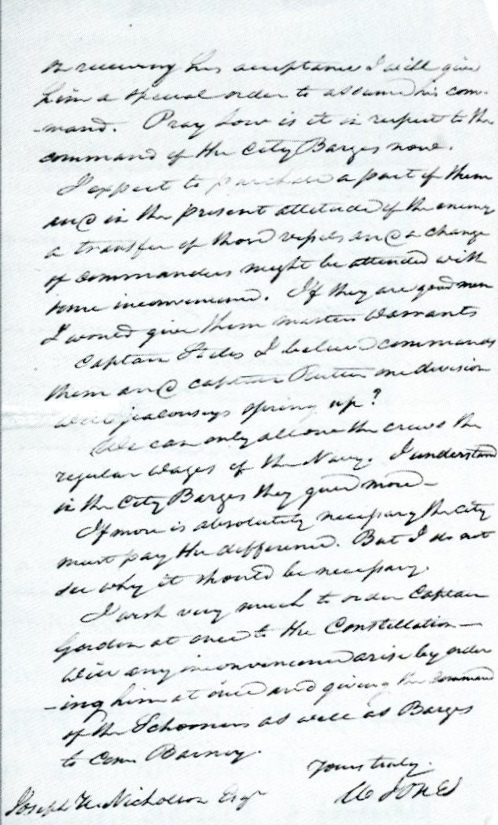 On receiving his acceptance I will give
him a special order to assume his com-
-mand. Pray how is it in respect to the
command of the City Barges now.
I expect to purchase a part of them
and in the present attitude of the enemy
a transfer of those vessels and a change
of commanders might be attended with
some inconvenience. If they are good men
I would give them masters warrants
Captain Stiles I believe commands
them and captain one division
will jealousys spring up?
We can only allow the crews the
regular wages of the Navy. I understand
in the City Barges they give more –
If more is absolutely necessary the city
must pay the difference. But I do not
see why it should be necessary.
I wish very much to order Captain
Gordon at once to the Constellation –
Will any inconvenience arise by order
-ing him at once and giving the command
of the Schooners as well as Barges
to Com. Barney.
Yours truly.
W Jones
Joseph H. Nicholson Esqr